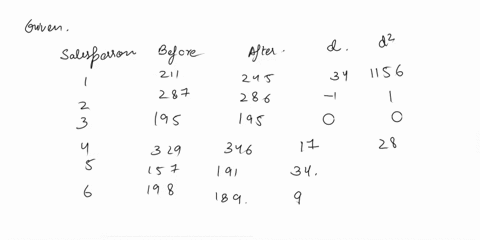 Given.
Salesperson Before After. d. d²
1 211 245 34 1156
2 287 286 -1 1
3 195 195 0 0
4 329 346 17 28
5 157 191 34.
6 198 189. 9